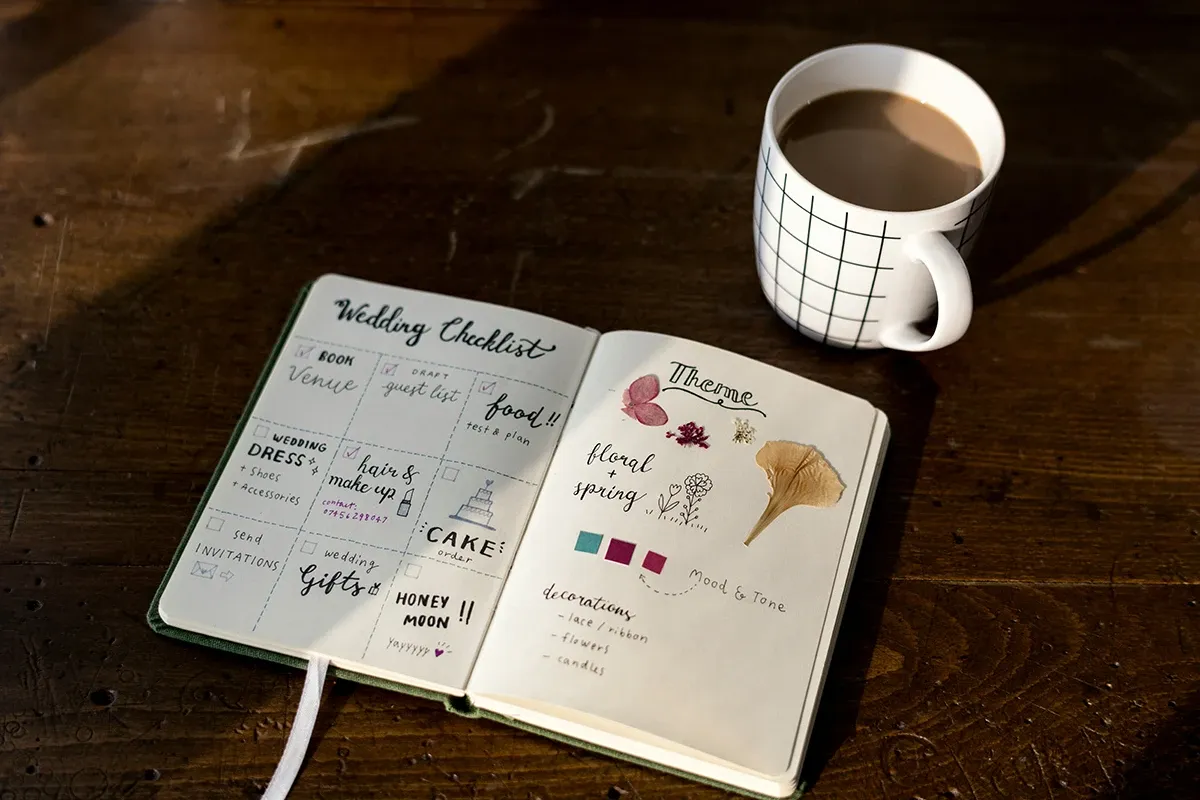 Wedding Checklist
BOOK
Venue
DRAFT
guest list
food!!
test & plan
WEDDING
DRESS
+ Shoes
+ Accessories
hair &
make up
contact:
07456298047
CAKE
order
send
INVITATIONS
wedding
Gifts
HONEY
MOON !!
yayyyyy
Theme
floral
+
spring
Mood & Tone
decorations
- lace / ribbon
- flowers
- candles